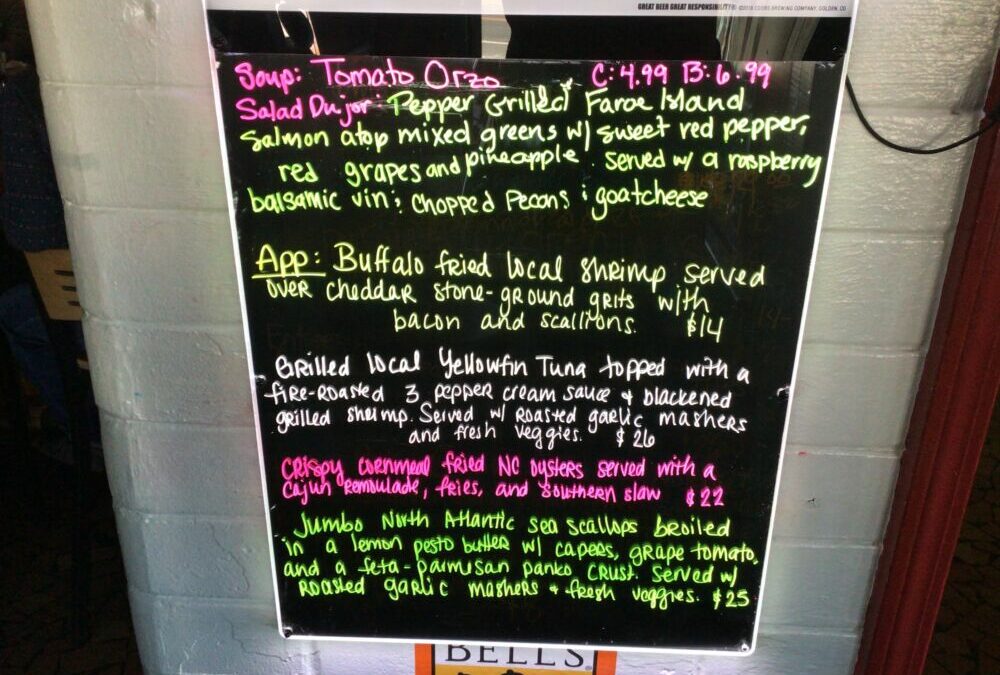 GREAT BEER GREAT RESPONSIBILITY® ©2018 COORS BREWING COMPANY, GOLDEN, CO
Soup: Tomato Orzo C: 4.99 B: 6.99
Salad Dujor: Pepper Grilled Faroe Island
Salmon atop mixed greens w/ sweet red pepper,
red grapes and pineapple. served w/ a raspberry
balsamic vin ; chopped Pecans ; goatcheese
App: Buffalo fried local shrimp served
over cheddar stone-ground grits with
bacon and scallions. $14
Grilled local Yellowfin Tuna topped with a
fire-roasted 3 pepper cream sauce + blackened
grilled shrimp. Served w/ Roasted garlic mashers
and fresh veggies. $26
Crispy cornmeal fried NC oysters served with a
Cajun remoulade, fries, and southern slaw $22
Jumbo North Atlantic sea scallops broiled
in a lemon pesto butter w/ capers, grape tomato,
and a feta-parmusan panko crust. Served w/
Roasted garlic mashers + fresh veggies. $25
BELL'S